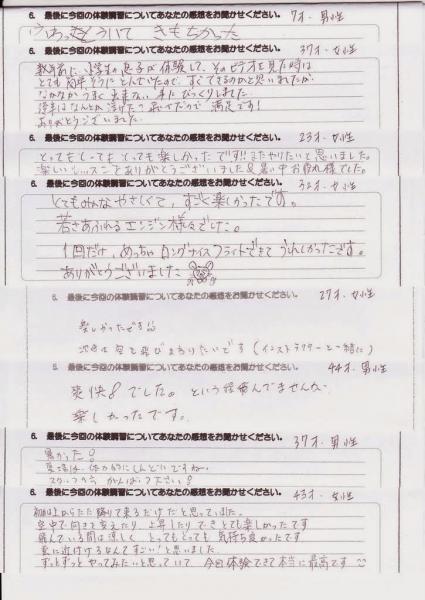 6. 最後に今回の体験講習についてあなたの感想をお聞かせください。 7才・男性
ふわっとういて きもちかった
6. 最後に今回の体験講習についてあなたの感想をお聞かせください。 37才・女性
数年前に、小学生の息子が体験して、そのビデオを見た時は
とても簡単そうにとんでいたので、すぐできるのかと思いましたが
なかなかうまく出来ない事にびっくりしました。
ありがとうございました。
6. 最後に今回の体験講習についてあなたの感想をお聞かせください。 23才・女性
とってもとってもとっても楽しかったです!!またやりたいと思いました。
楽しいレッスンをありがとうございました&暑い中お疲れ様でした。
6. 最後に今回の体験講習についてあなたの感想をお聞かせください。 32才・女性
とてもみんなやさしくて、すごく楽しかったです。
若さあふれるエンジン様々でした。
1回だけ、めっちゃロングナイスフライトできてうれしかったです。
ありがとうございました
6. 最後に今回の体験講習についてあなたの感想をお聞かせください。 27才・女性
楽しかったです!!
次回は空を飛びまわりたいです(インストラクターと一緒に)
6. 最後に今回の体験講習についてあなたの感想をお聞かせください。 44才・男性
爽快!でした。という程飛んでませんが、
楽しかったです。
6. 最後に今回の体験講習についてあなたの感想をお聞かせください。 37才・男性
暑かった!
夏場は、体力的にしんどいですねー
スタッフの方 がんばって下さい!
6. 最後に今回の体験講習についてあなたの感想をお聞かせください。 43才・女性
初めは上からただ降りて来るだけだと思っていました。
空中で向きを変えたり、上昇したりでき とても楽しかったです
飛んでいる間は涼しく とってもとっても 気持ち良かったです
鳥に近付けるなんてすごい!と思いました。
ずっとずっと やってみたいと思っていて 今日体験できて本当に最高です